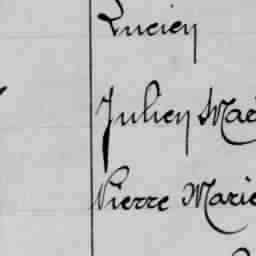 Lucien
Julien Mari
Pierre Marie